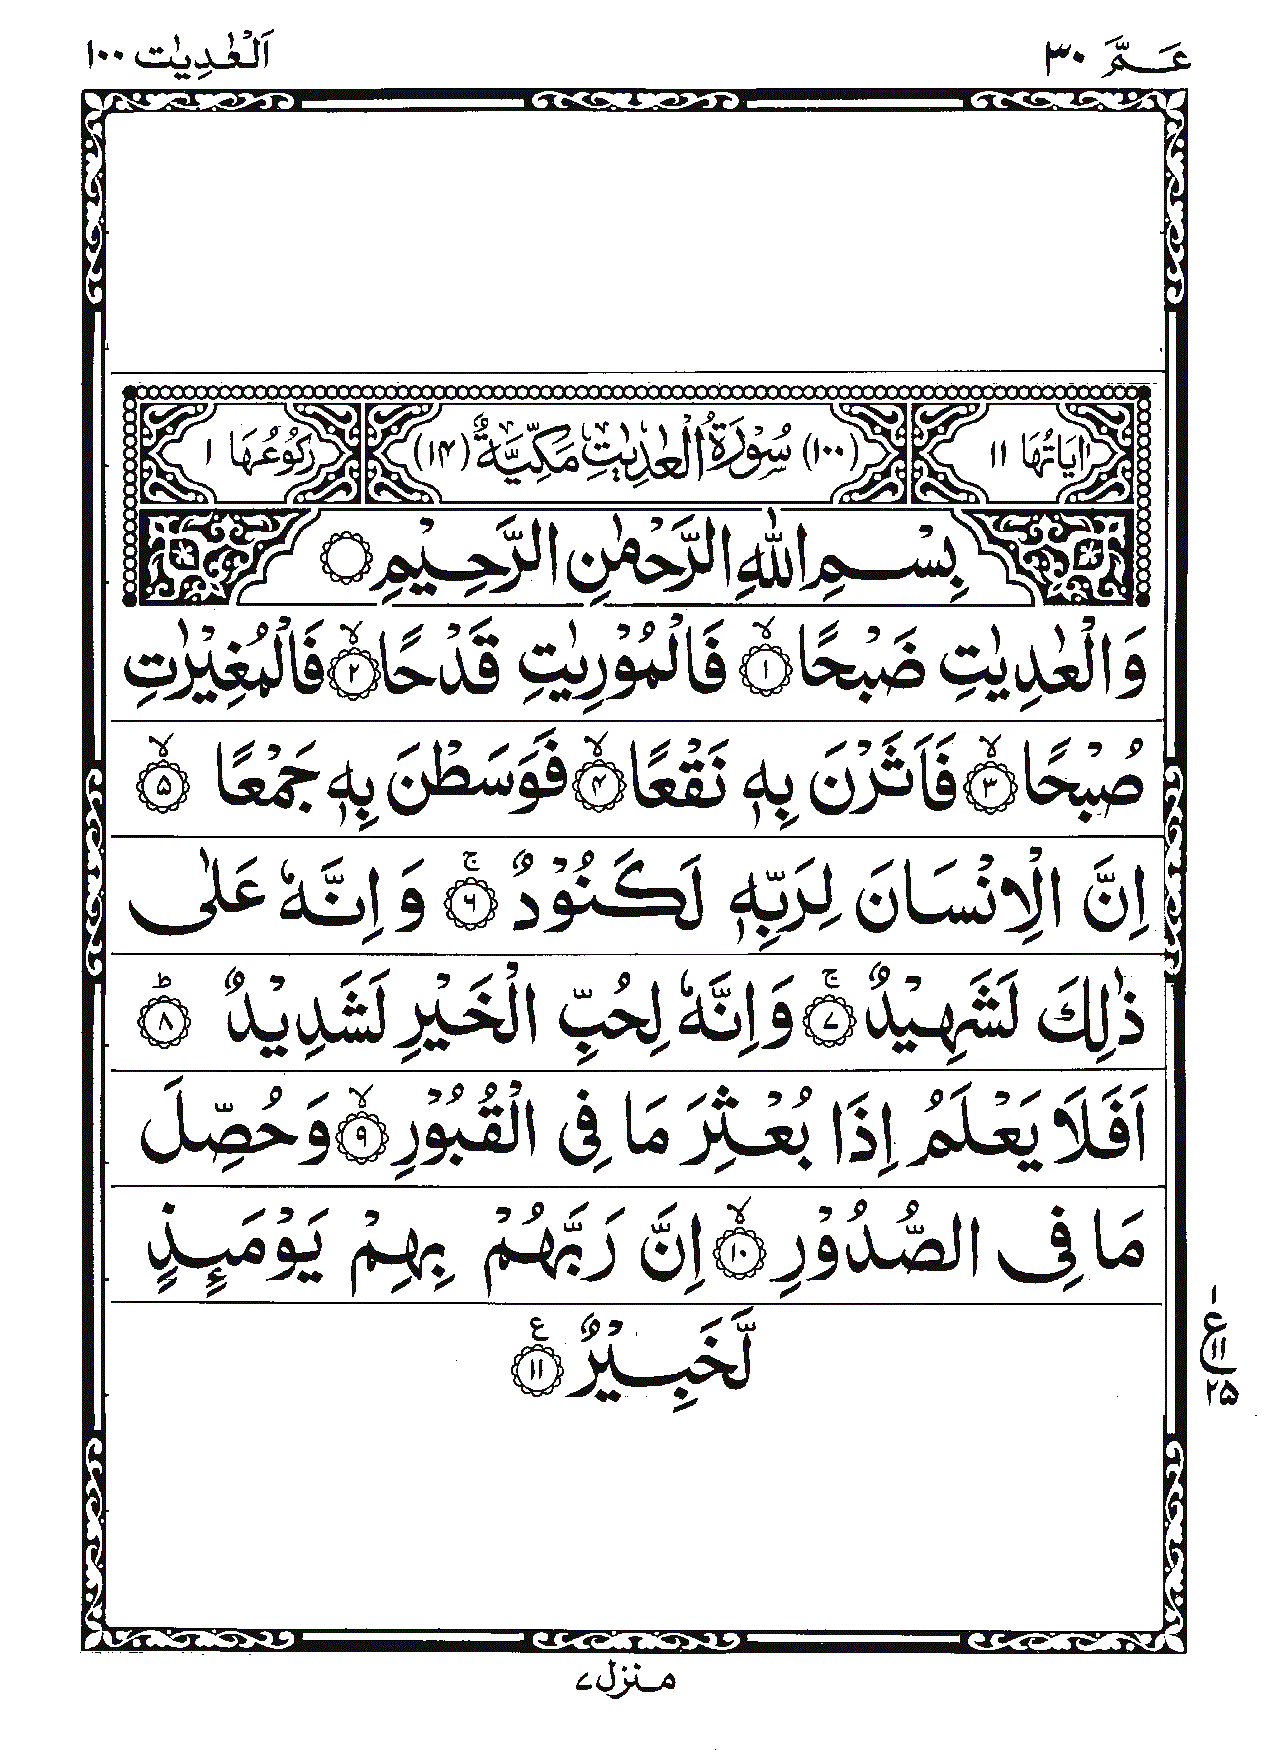 عَمَّ ٣٠ اَلْعٰدِيٰت ١٠٠
اٰيَاتُهَا ١١ (١٠٠) سُوْرَةُ الْعٰدِيٰتِ مَكِّيَّةٌ (١٤) رُكُوْعُهَا ١
بِسْمِ اللّٰهِ الرَّحْمٰنِ الرَّحِيْمِ
وَالْعٰدِيٰتِ ضَبْحًا ۙ﴿١﴾ فَالْمُوْرِيٰتِ قَدْحًا ۙ﴿٢﴾ فَالْمُغِيْرٰتِ
صُبْحًا ۙ﴿٣﴾ فَاَثَرْنَ بِهٖ نَقْعًا ۙ﴿٤﴾ فَوَسَطْنَ بِهٖ جَمْعًا ۙ﴿٥﴾
اِنَّ الْاِنْسَانَ لِرَبِّهٖ لَكَنُوْدٌ ۚ﴿٦﴾ وَ اِنَّهٗ عَلٰى
ذٰلِكَ لَشَهِيْدٌ ۚ﴿٧﴾ وَاِنَّهٗ لِحُبِّ الْخَيْرِ لَشَدِيْدٌ ؕ﴿٨﴾
اَفَلَا يَعْلَمُ اِذَا بُعْثِرَ مَا فِى الْقُبُوْرِ ۙ﴿٩﴾ وَحُصِّلَ
مَا فِى الصُّدُوْرِ ۙ﴿١٠﴾ اِنَّ رَبَّهُمْ بِهِمْ يَوْمَئِذٍ
لَّخَبِيْرٌ ﴿١١﴾ ع
١
ع ١١
٢٥
منزل ٧